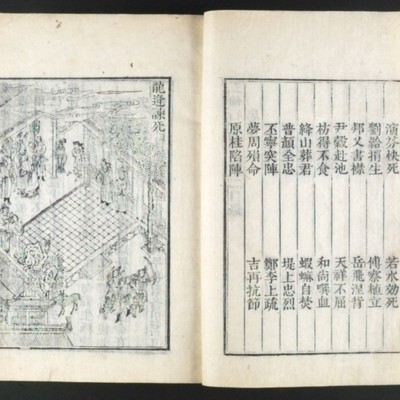 演芬快死 若水効死
劉韐捐生 傅察植立
邦乂書襟 岳飛涅背
尹穀赴池 天祥不屈
枋得不食 和尙噀血
絳山葬君 蝦蟆自焚
普顏全忠 堤上忠烈
丕寧突陣 鄭李上疏
夢周殞命 吉再抗節
原桂陷陣
龍逄諫死